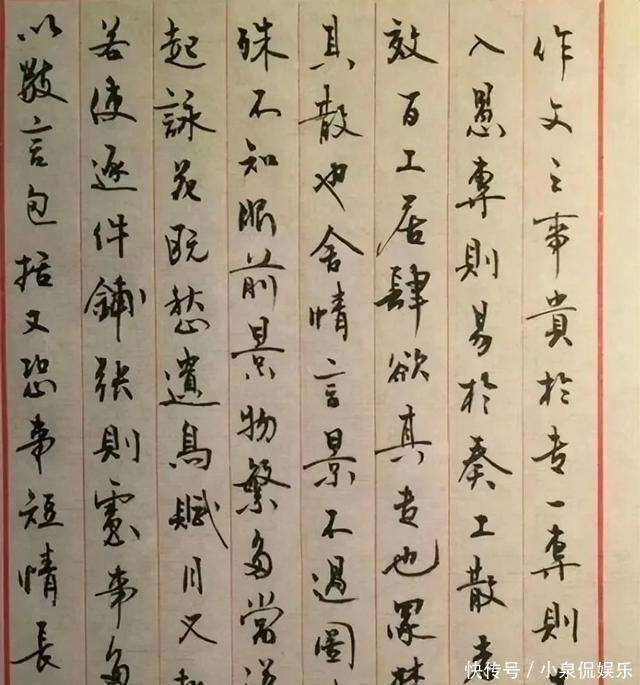 作文之事貴於专一專則
入愚專則易於奏工散
效百工居肆欲其专也眾
其散也舍情言景不過圖
殊不知眼前景物繁多當
起詠花既愁遺鳥賦月又
若使逐件鋪張則慮事多
以数言包括又恐事短情長
快传号/小泉侃娱乐